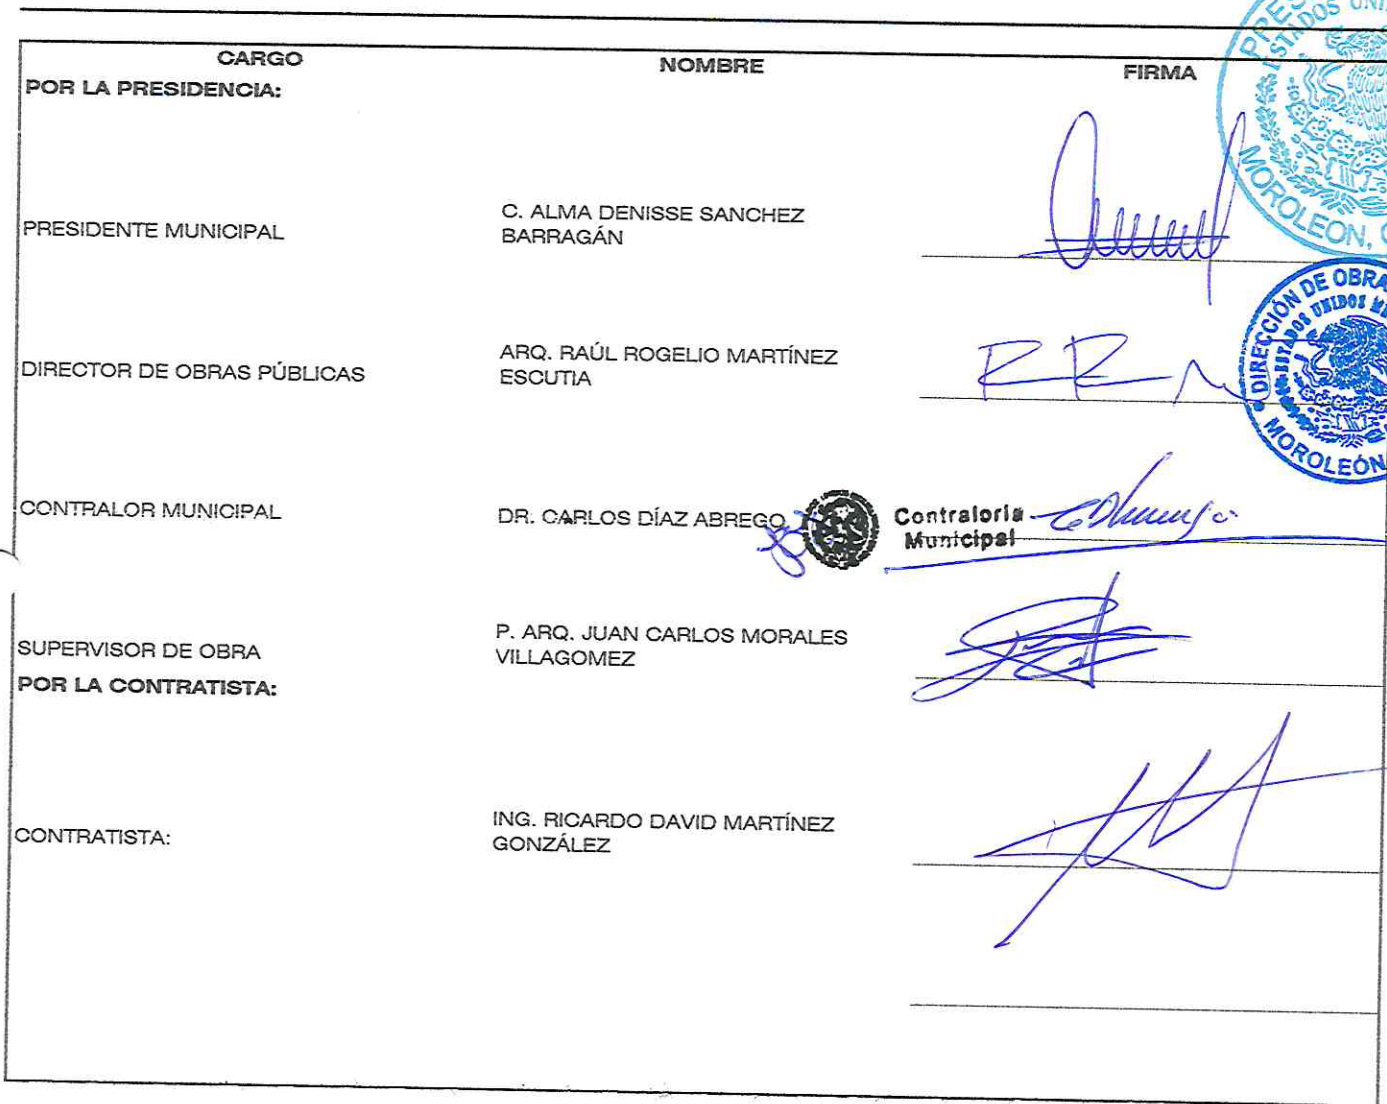 CARGO NOMBRE FIRMA
POR LA PRESIDENCIA:
PRESIDENTE MUNICIPAL
C. ALMA DENISSE SANCHEZ
BARRAGÁN
DIRECTOR DE OBRAS PÚBLICAS
ARQ. RAÚL ROGELIO MARTÍNEZ
ESCUTIA
CONTRALOR MUNICIPAL
DR. CARLOS DÍAZ ABREGO
Contraloría
Municipal
SUPERVISOR DE OBRA
P. ARQ. JUAN CARLOS MORALES
VILLAGOMEZ
POR LA CONTRATISTA:
CONTRATISTA:
ING. RICARDO DAVID MARTÍNEZ
GONZÁLEZ
ESTADOS
MOROLEON,
DIRECCIÓN DE
ESTADOS UNIDOS
MOROLEÓN